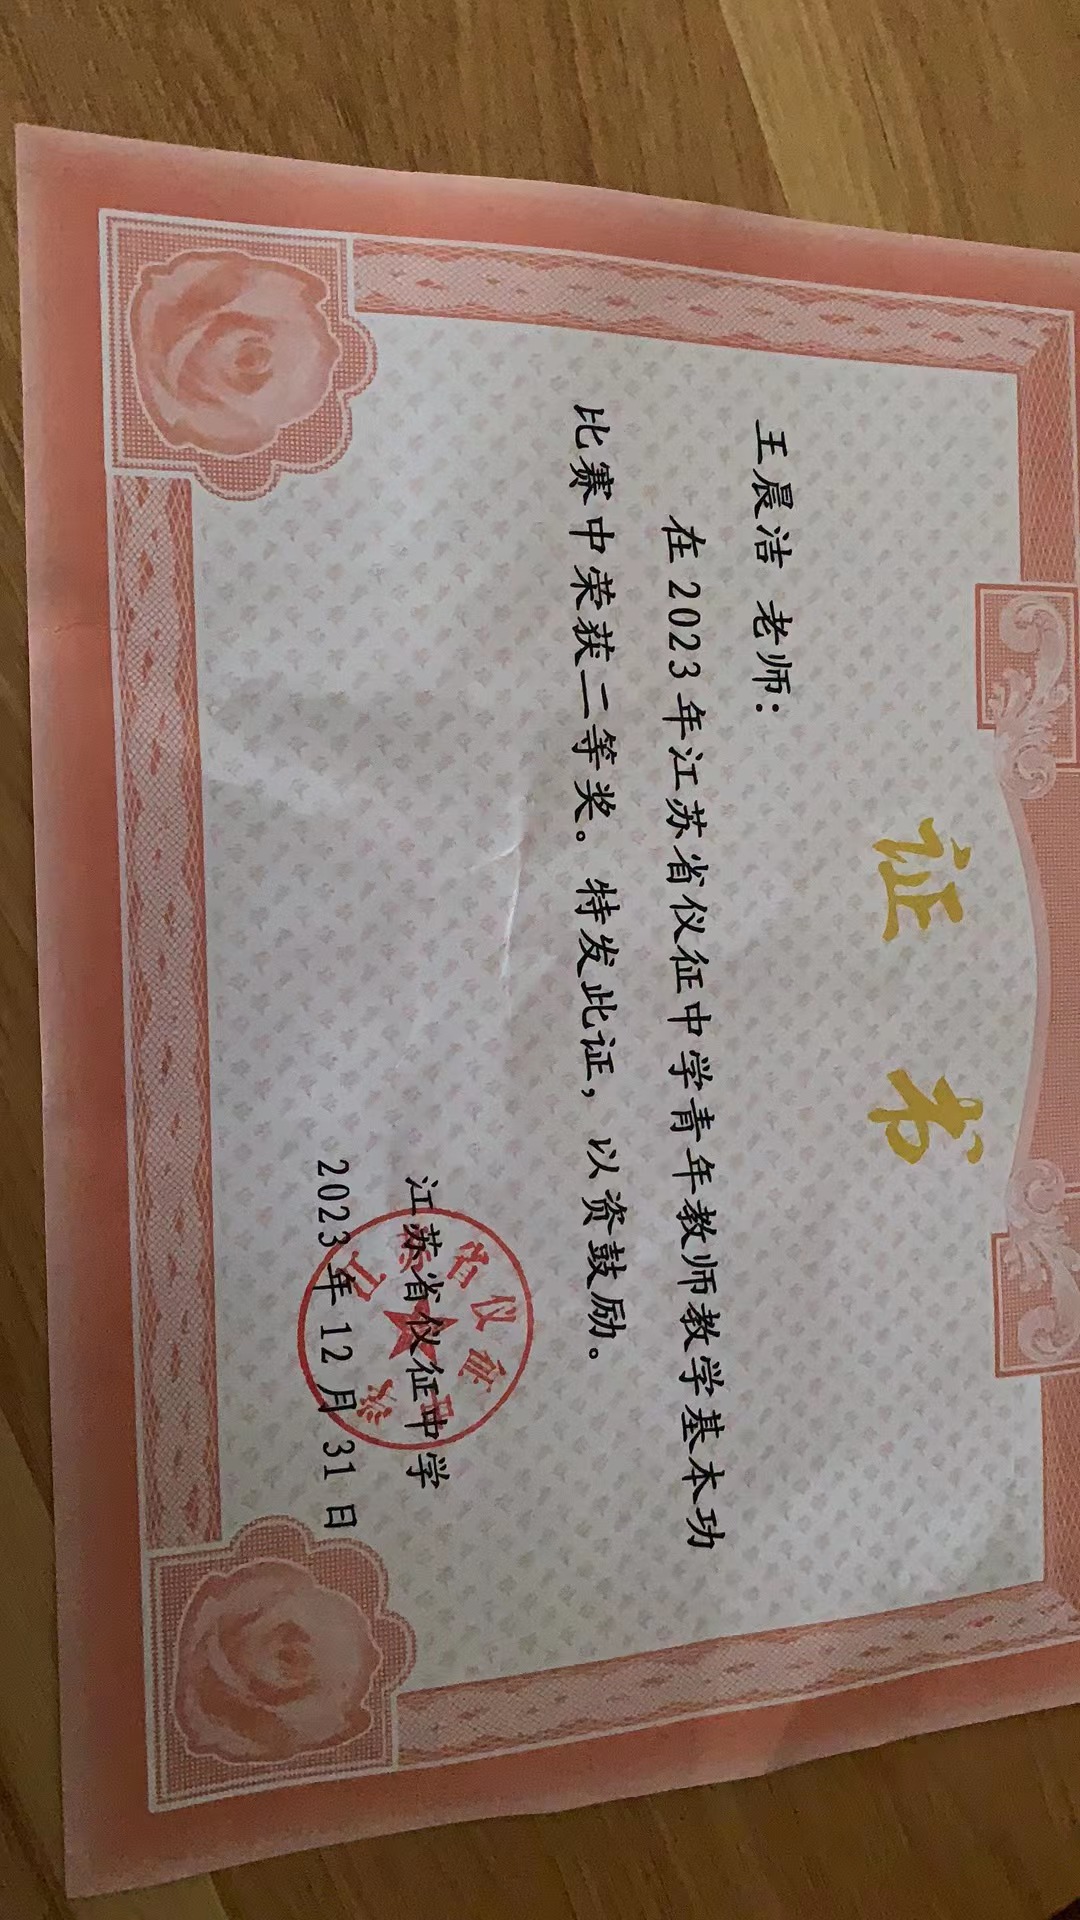 证书
王晨洁 老师：
在2023年江苏省仪征中学青年教师教学基本功
比赛中荣获二等奖。特发此证，以资鼓励。
江苏省仪征中学
2023年12月31日